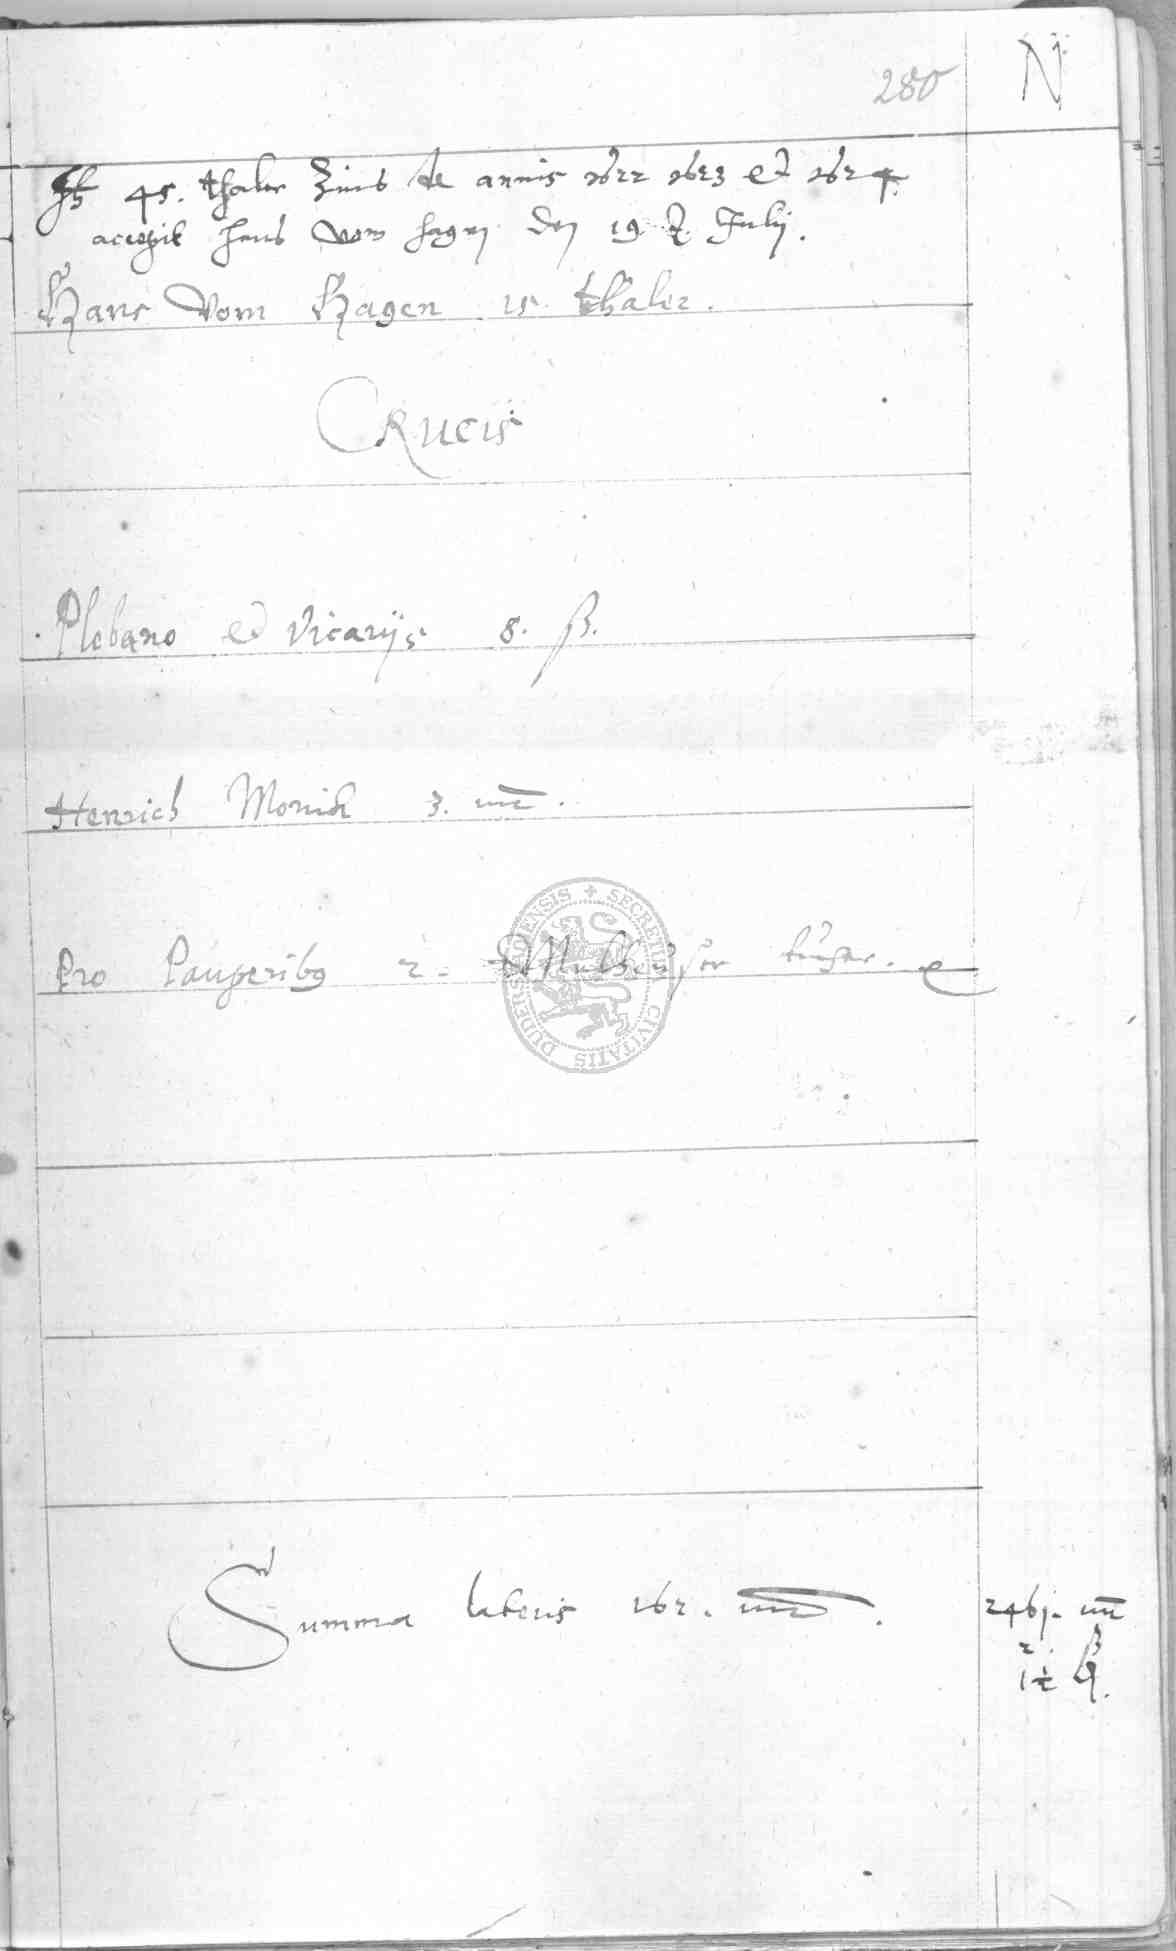 280
N
45. thaler Zins de annis 1622 1623 et 1624.
accepit Hans vom Hagen den 19 Julij.
Hans Vom Hagen 15 thaler.
CRucis
Plebano et Vicarijs 8. ß.
Henrich Monich 3. mr.
Pro Pauperibg 2.
SECRETUM CIVITATIS DUDERSTADENSIS
Summa lateris 162. mr.
246j. mr
2. ß